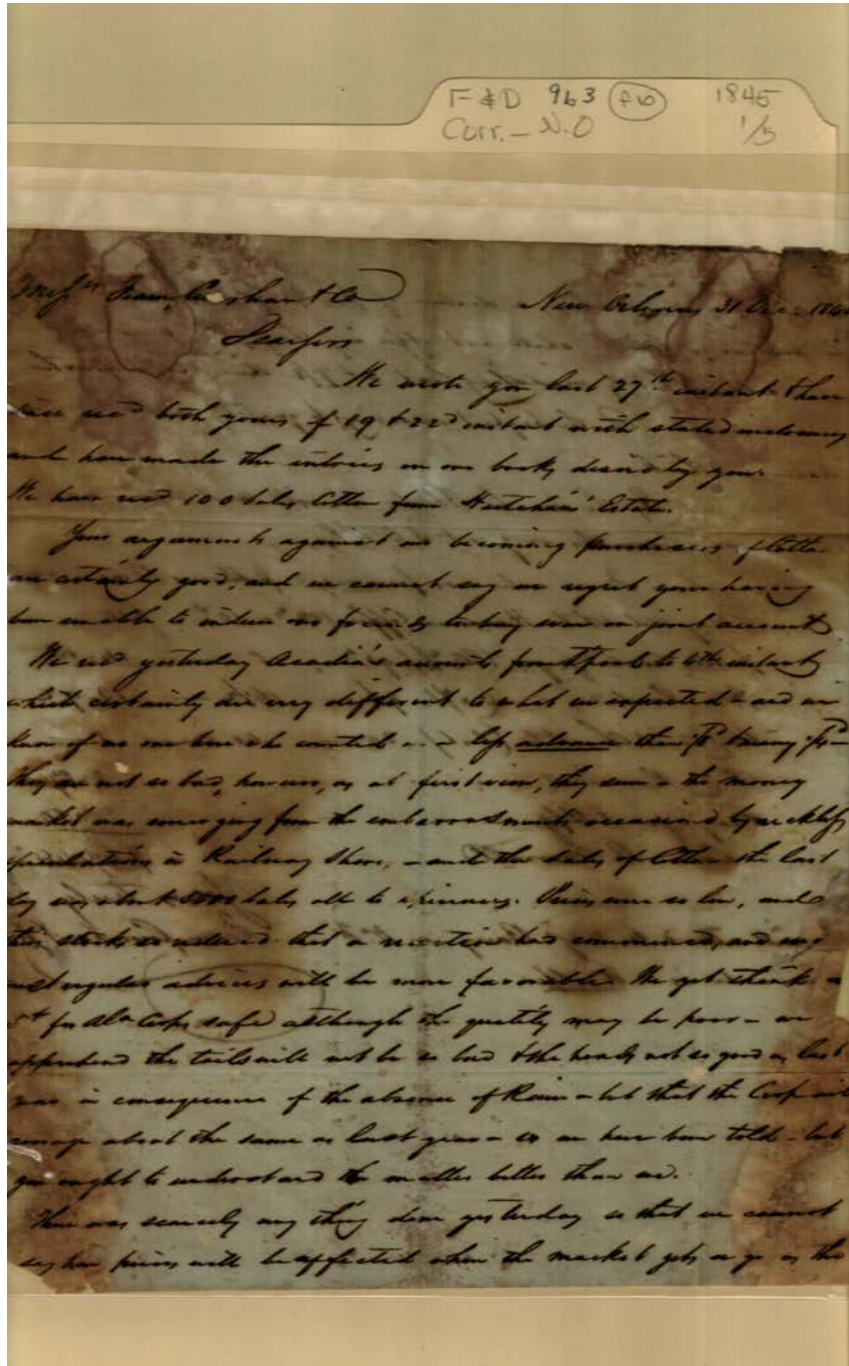 F&D 963 (f10) 1845
Corr. – N.O 1/5
Messrs & Co New Orleans 31 Dec. 184
Dear sirs
We wrote you last 27th instant & have
since recd both yours of 19 & 22d instant with stated inclosures
and have made the entries in our books desired by you.
We have recd 100 bales Cotton from Hutchins' Estate.
Your arguments against our becoming purchasers of Cotton
are certainly good, and we cannot say we regret your having
been unable to induce our friends to buy even on joint account
We recd yesterday Acadia's accounts from to 4th instant
which certainly are very different to what we expected – and we
know of no one here who counted on a less advance than
they are not so bad, however, as at first view, they seem – the money
market was emerging from the embarrassments occasioned by reckless
speculations in Railway Shares, – and the sales of Cotton the last
day was about 5000 bales all to spinners. Prices were so low, and
the stocks so reduced that a reaction had commenced, and our
next regular advices will be more favorable. We yet think a
for Crops safe although the quality may be poor – we
apprehend the tails will not be so bad & the heads not as good as last
year in consequence of the absence of Rain – but that the Crop will
average about the same as last year – so we have been told – but
you ought to understand the matter better than we.
There was scarcely any thing done yesterday so that we cannot
say how prices will be affected when the market gets a go as the